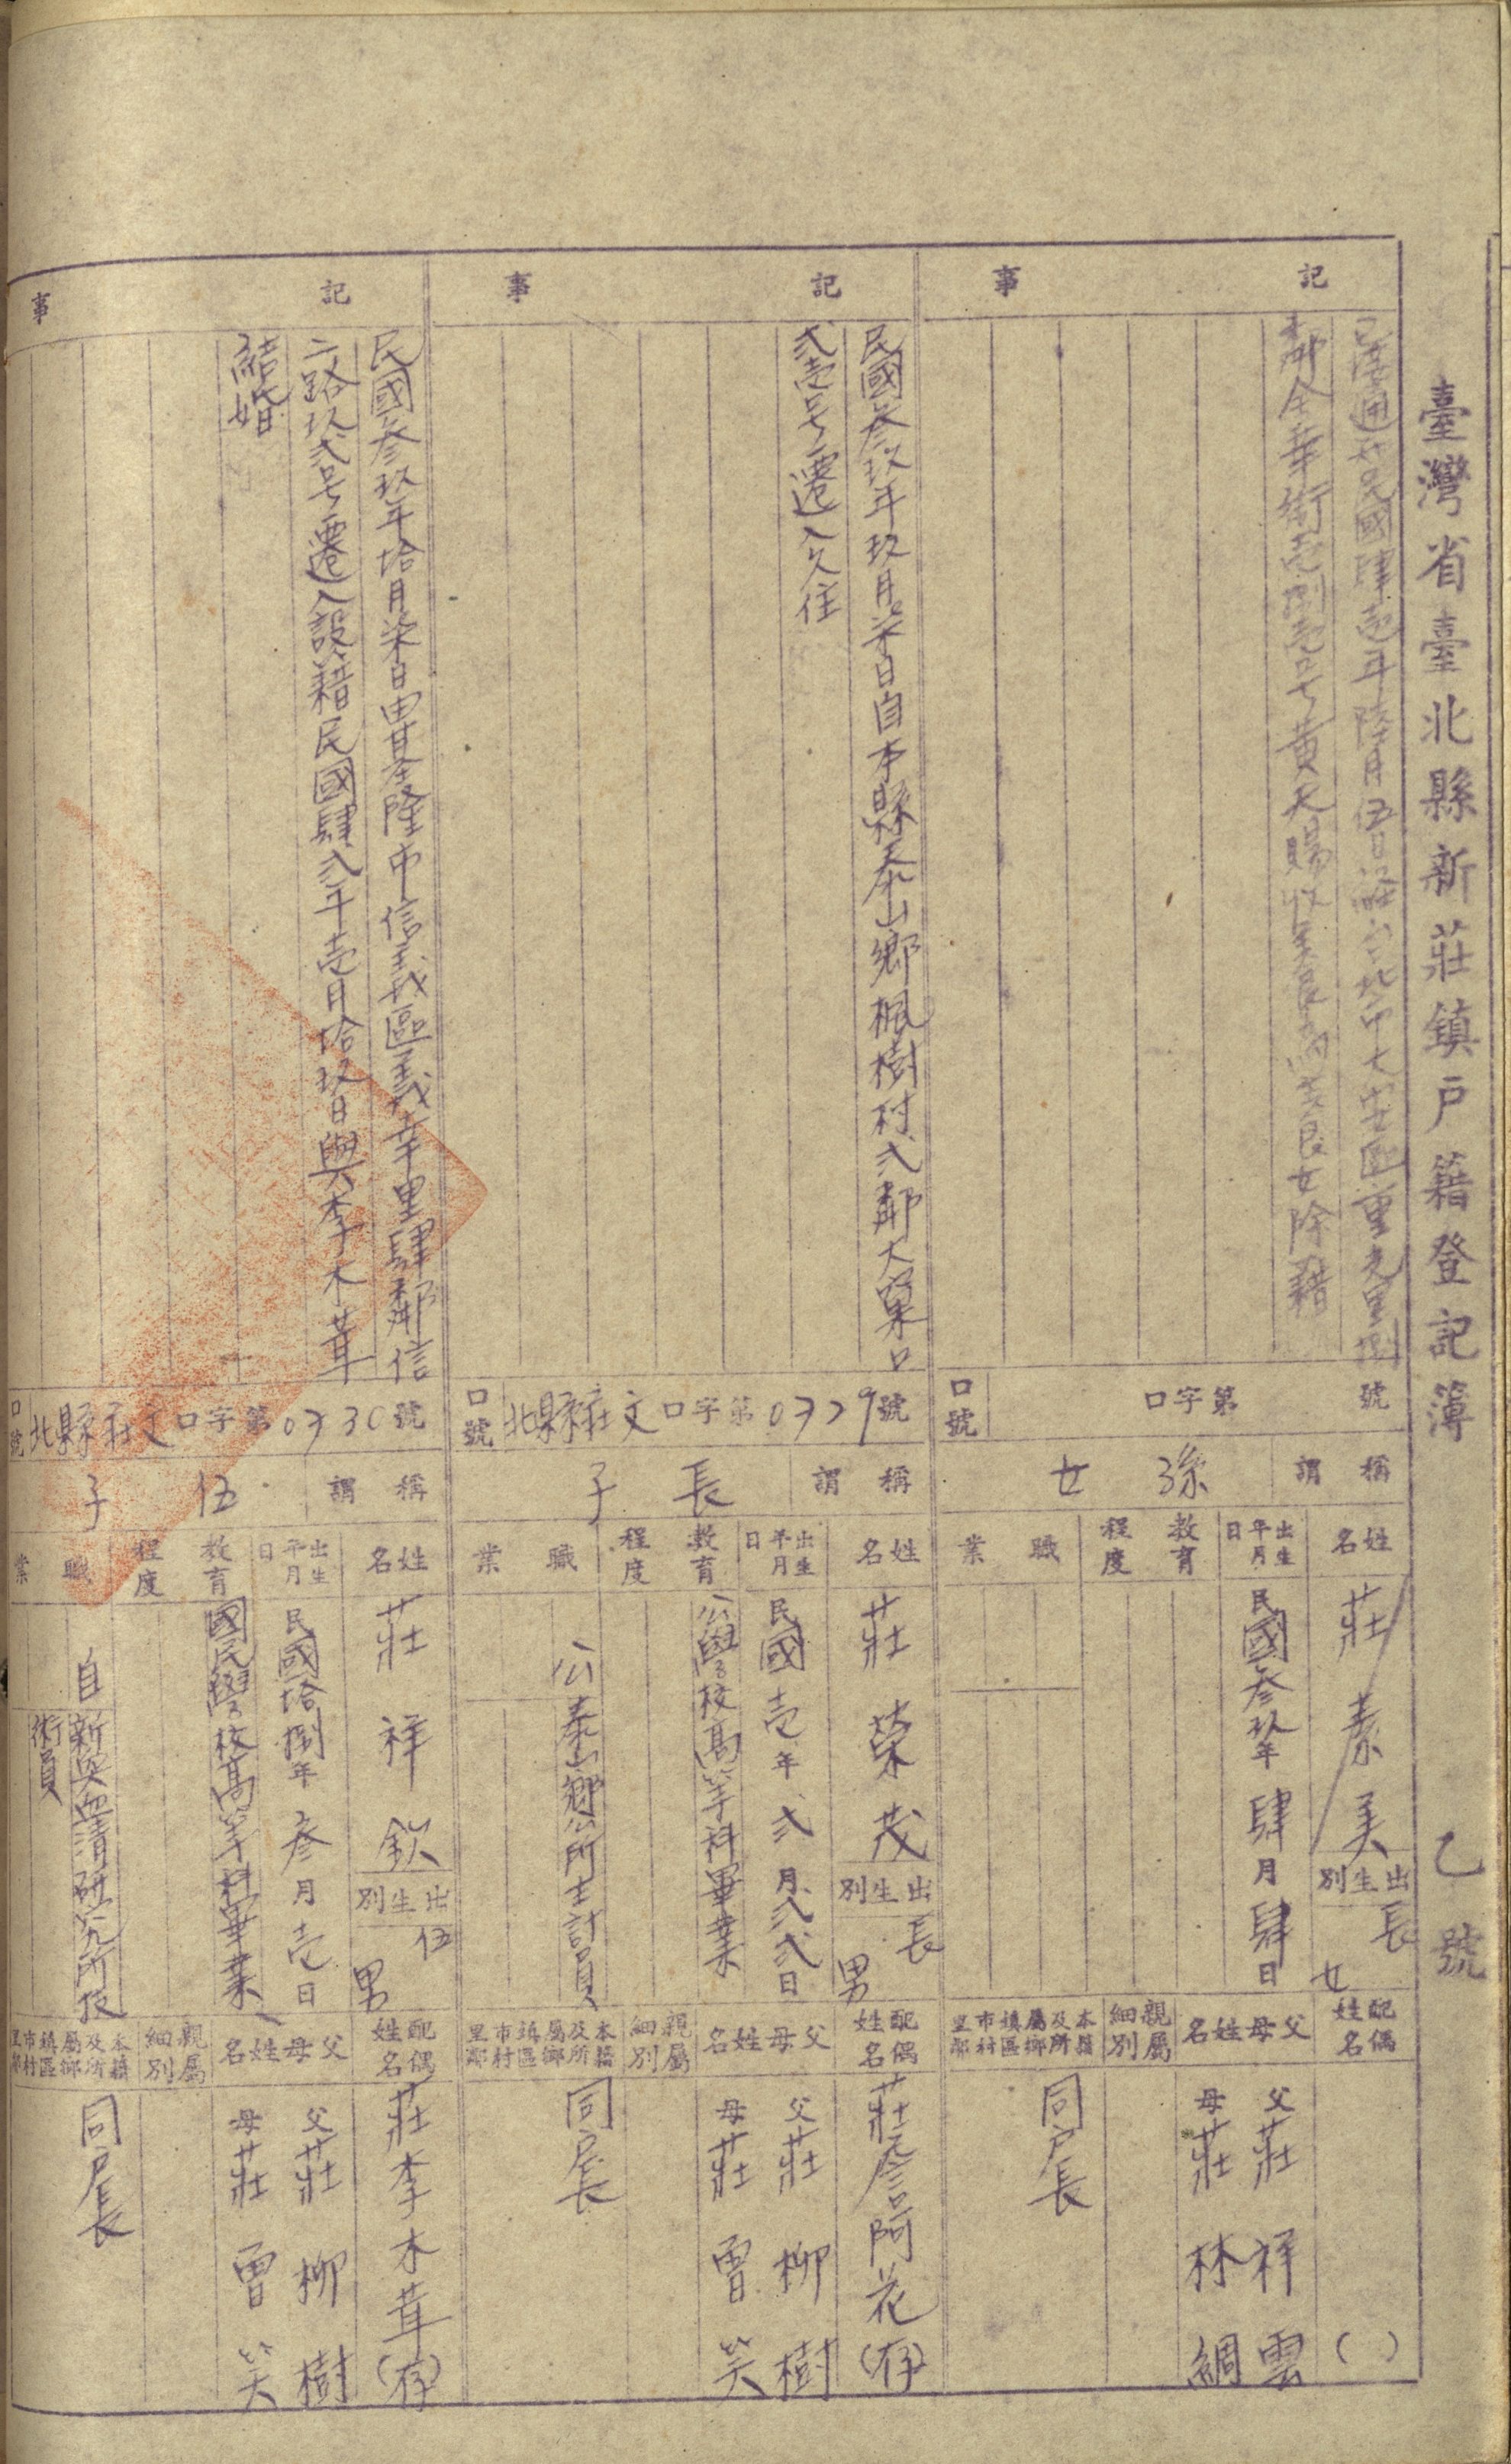 臺灣省臺北縣新莊鎮戶籍登記簿 乙號
記事
民國肆壹年陸月伍日
金華街壹捌壹号黃天賜收養為長女除籍
口號 口字第 號
稱謂 孫女
姓名 莊素美
出生別 長女
出生年月日 民國參玖年肆月肆日
教育程度
職業
配偶姓名 ( )
父母姓名 父 莊祥雲
母 莊林綢
親屬細別
本籍及所屬鄉鎮區市村里鄰 同戶長
記事
民國參玖年玖月柒日自本縣泰山鄉楓樹村弐鄰大窠口
弐壹号遷入久住
口號 北縣莊文口字第0729號
稱謂 長子
姓名 莊榮茂
出生別 長男
出生年月日 民國壹年弐月弐弐日
教育程度 公學校高等科畢業
職業 公 泰山鄉公所主計員
配偶姓名 莊詹阿花(存)
父母姓名 父 莊柳樹
母 莊曾笑
親屬細別
本籍及所屬鄉鎮區市村里鄰 同戶長
記事
民國參玖年拾月柒日由基隆市信義區義幸里肆鄰信
二路玖弐号遷入設籍民國肆弐年壹月拾玖日與李木茸
結婚
口號 北縣莊文口字第0730號
稱謂 伍子
姓名 莊祥欽
出生別 伍男
出生年月日 民國拾捌年參月壹日
教育程度 國民學校高等科畢業
職業 自 新興血清研究所技
術員
配偶姓名 莊李木茸(存)
父母姓名 父 莊柳樹
母 莊曾笑
親屬細別
本籍及所屬鄉鎮區市村里鄰 同戶長